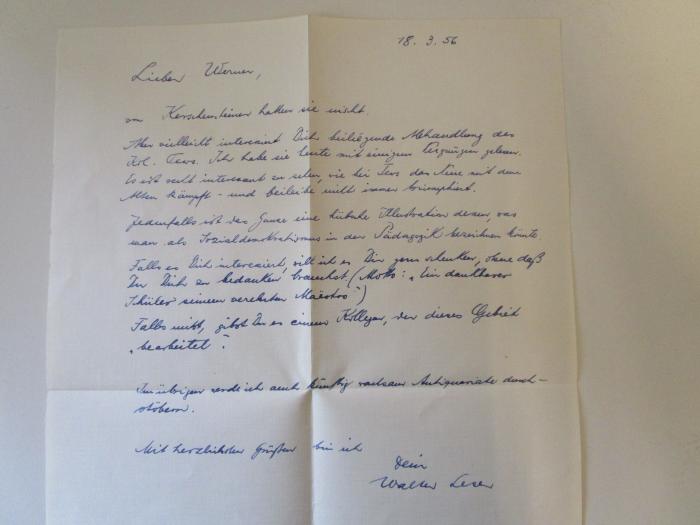 18. 3. 56
Lieber Werner,
von Kerschensteiner hatten sie nicht.
Aber vielleicht interessiert Dich beiliegende Abhandlung des
Tews. Ich habe sie heute mit einigem Vergnügen gelesen.
Es ist recht interessant zu sehen, wie bei Tews das Neue mit dem
Alten kämpft – und beileibe nicht immer triumphiert.
Jedenfalls ist das Ganze eine hübsche Illustration dessen, was
man als Sozialdemokratismus in der Pädagogik bezeichnen könnte.
Falls es Dich interessiert, will ich es Dir gern schenken, ohne daß
Du Dich zu bedanken brauchst. (Motto: „Ein dankbarer
Schüler seinem verehrten Maestro“)
Falls nicht, gibst Du es einem Kollegen, der dieses Gebiet
„bearbeitet“.
Im übrigen werde ich auch künftig Antiquariate durch-
stöbern.
Mit herzlichsten Grüßen bin ich
Dein
Walter Leser